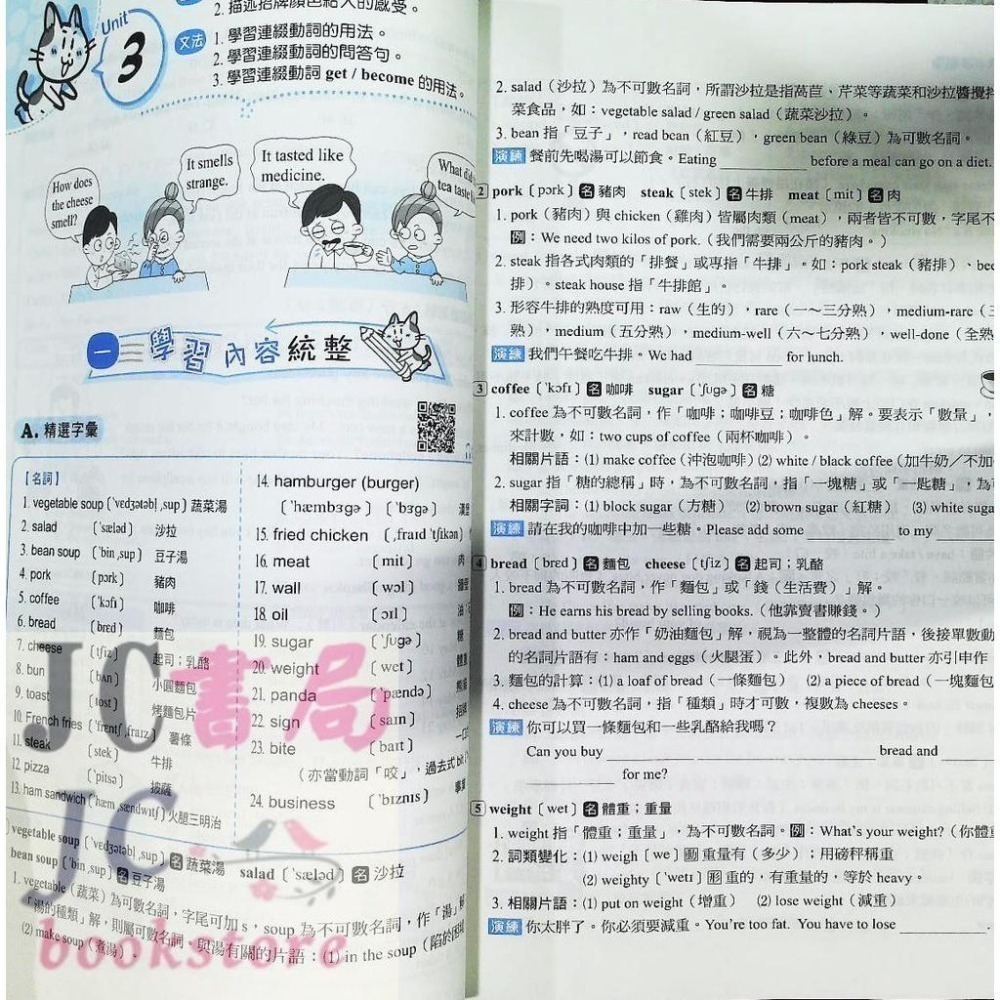 Unit
3
2. 描述招牌顏色給人的感受。
文法
1. 學習連綴動詞的用法。
2. 學習連綴動詞的問答句。
3. 學習連綴動詞 get / become 的用法。
How does
the cheese
smell?
It smells
strange.
It tasted like
medicine.
What did
tea taste
一 學習內容統整
A. 精選字彙
【名詞】
1. vegetable soup [ˋvɛdʒətəbḷ ˏsup] 蔬菜湯
2. salad [ˋsæləd] 沙拉
3. bean soup [ˋbin ˏsup] 豆子湯
4. pork [pɔrk] 豬肉
5. coffee [ˋkɔfɪ] 咖啡
6. bread [brɛd] 麵包
7. cheese [tʃiz] 起司；乳酪
8. bun [bʌn] 小圓麵包
9. toast [tost] 烤麵包片
10. French fries [ˋfrɛntʃ ˏfraɪz] 薯條
11. steak [stek] 牛排
12. pizza [ˋpitsə] 披薩
13. ham sandwich [ˋhæm ˏsændwɪtʃ] 火腿三明治
14. hamburger (burger)
[ˋhæmbɝgɚ] [ˋbɝgɚ]
15. fried chicken [ˏfraɪd ˋtʃɪkən]
16. meat [mit] 肉
17. wall [wɔl]
18. oil [ɔɪl] 油
19. sugar [ˋʃʊgɚ] 糖
20. weight [wet] 體重
21. panda [ˋpændə]
22. sign [saɪn]
23. bite [baɪt]
(亦當動詞「咬」，過去式 bit
24. business [ˋbɪznɪs]
vegetable soup [ˋvɛdʒətəbḷ ˏsup] 名 蔬菜湯
bean soup [ˋbin ˏsup] 名 豆子湯 salad [ˋsæləd] 名 沙拉
1. vegetable（蔬菜）為可數名詞，字尾可加 s，soup 為不可數名詞，作「湯」
「湯的種類」解，則屬可數名詞，與湯有關的片語：(1) in the soup
(2) make soup（煮湯）.
JC書局
JC
bookstore
2. salad（沙拉）為不可數名詞，所謂沙拉是指萵苣、芹菜等蔬菜和沙拉醬攪拌
菜食品，如：vegetable salad / green salad（蔬菜沙拉）。
3. bean 指「豆子」，read bean（紅豆），green bean（綠豆）為可數名詞。
演練 餐前先喝湯可以節食。Eating ________ before a meal can go on a diet.
2 pork [pɔrk] 名 豬肉 steak [stek] 名 牛排 meat [mit] 名 肉
1. pork（豬肉）與 chicken（雞肉）皆屬肉類（meat），兩者皆不可數，字尾不
例：We need two kilos of pork.（我們需要兩公斤的豬肉。）
2. steak 指各式肉類的「排餐」或專指「牛排」。如：pork steak（豬排）、bee
排）。steak house 指「牛排館」。
3. 形容牛排的熟度可用：raw（生的），rare（一～三分熟），medium-rare（三
熟），medium（五分熟），medium-well（六～七分熟），well-done（全熟
演練 我們午餐吃牛排。We had ________ for lunch.
3 coffee [ˋkɔfɪ] 名 咖啡 sugar [ˋʃʊgɚ] 名 糖
1. coffee 為不可數名詞，作「咖啡；咖啡豆；咖啡色」解。要表示「數量」，
來計數，如：two cups of coffee（兩杯咖啡）。
相關片語：(1) make coffee（沖泡咖啡）(2) white / black coffee（加牛奶／不加
2. sugar 指「糖的總稱」時，為不可數名詞，指「一塊糖」或「一匙糖」，為可
相關字詞：(1) block sugar（方糖） (2) brown sugar（紅糖） (3) white suga
演練 請在我的咖啡中加一些糖。Please add some ________ to my ________
4 bread [brɛd] 名 麵包 cheese [tʃiz] 名 起司；乳酪
1. bread 為不可數名詞，作「麵包」或「錢（生活費）」解。
例：He earns his bread by selling books.（他靠賣書賺錢。）
2. bread and butter 亦作「奶油麵包」解，視為一整體的名詞片語，後接單數動
的名詞片語有：ham and eggs（火腿蛋）。此外，bread and butter 亦引申作
3. 麵包的計算：(1) a loaf of bread（一條麵包） (2) a piece of bread（一塊麵包
4. cheese 為不可數名詞，指「種類」時才可數，複數為 cheeses。
演練 你可以買一條麵包和一些乳酪給我嗎？
Can you buy ________ ________ ________ bread and ________
________ for me?
5 weight [wet] 名 體重；重量
1. weight 指「體重；重量」，為不可數名詞。例：What's your weight?（你體重
2. 詞類變化：(1) weigh [we] 動 重量有（多少）；用磅秤稱重
(2) weighty [ˋwetɪ] 形 重的，有重量的，等於 heavy。
3. 相關片語：(1) put on weight（增重） (2) lose weight（減重）
演練 你太胖了。你必須要減重。You're too fat. You have to lose ________.